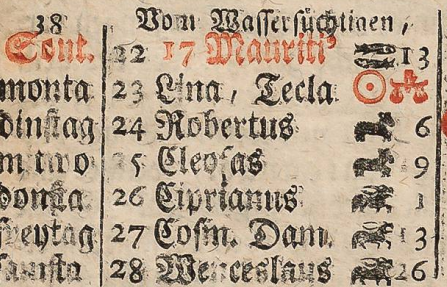 38 Vom Wassersüchtigen,
Sont. 22 17 Mauriti9 13
monta 23 Lina, Tecla
dinstag 24 Robertus 6
m two 25 Cleofas 9
donta 26 Ciprianus 1
freytag 27 Cosm. Dam. 13
samsta 28 Wenceslaus 26